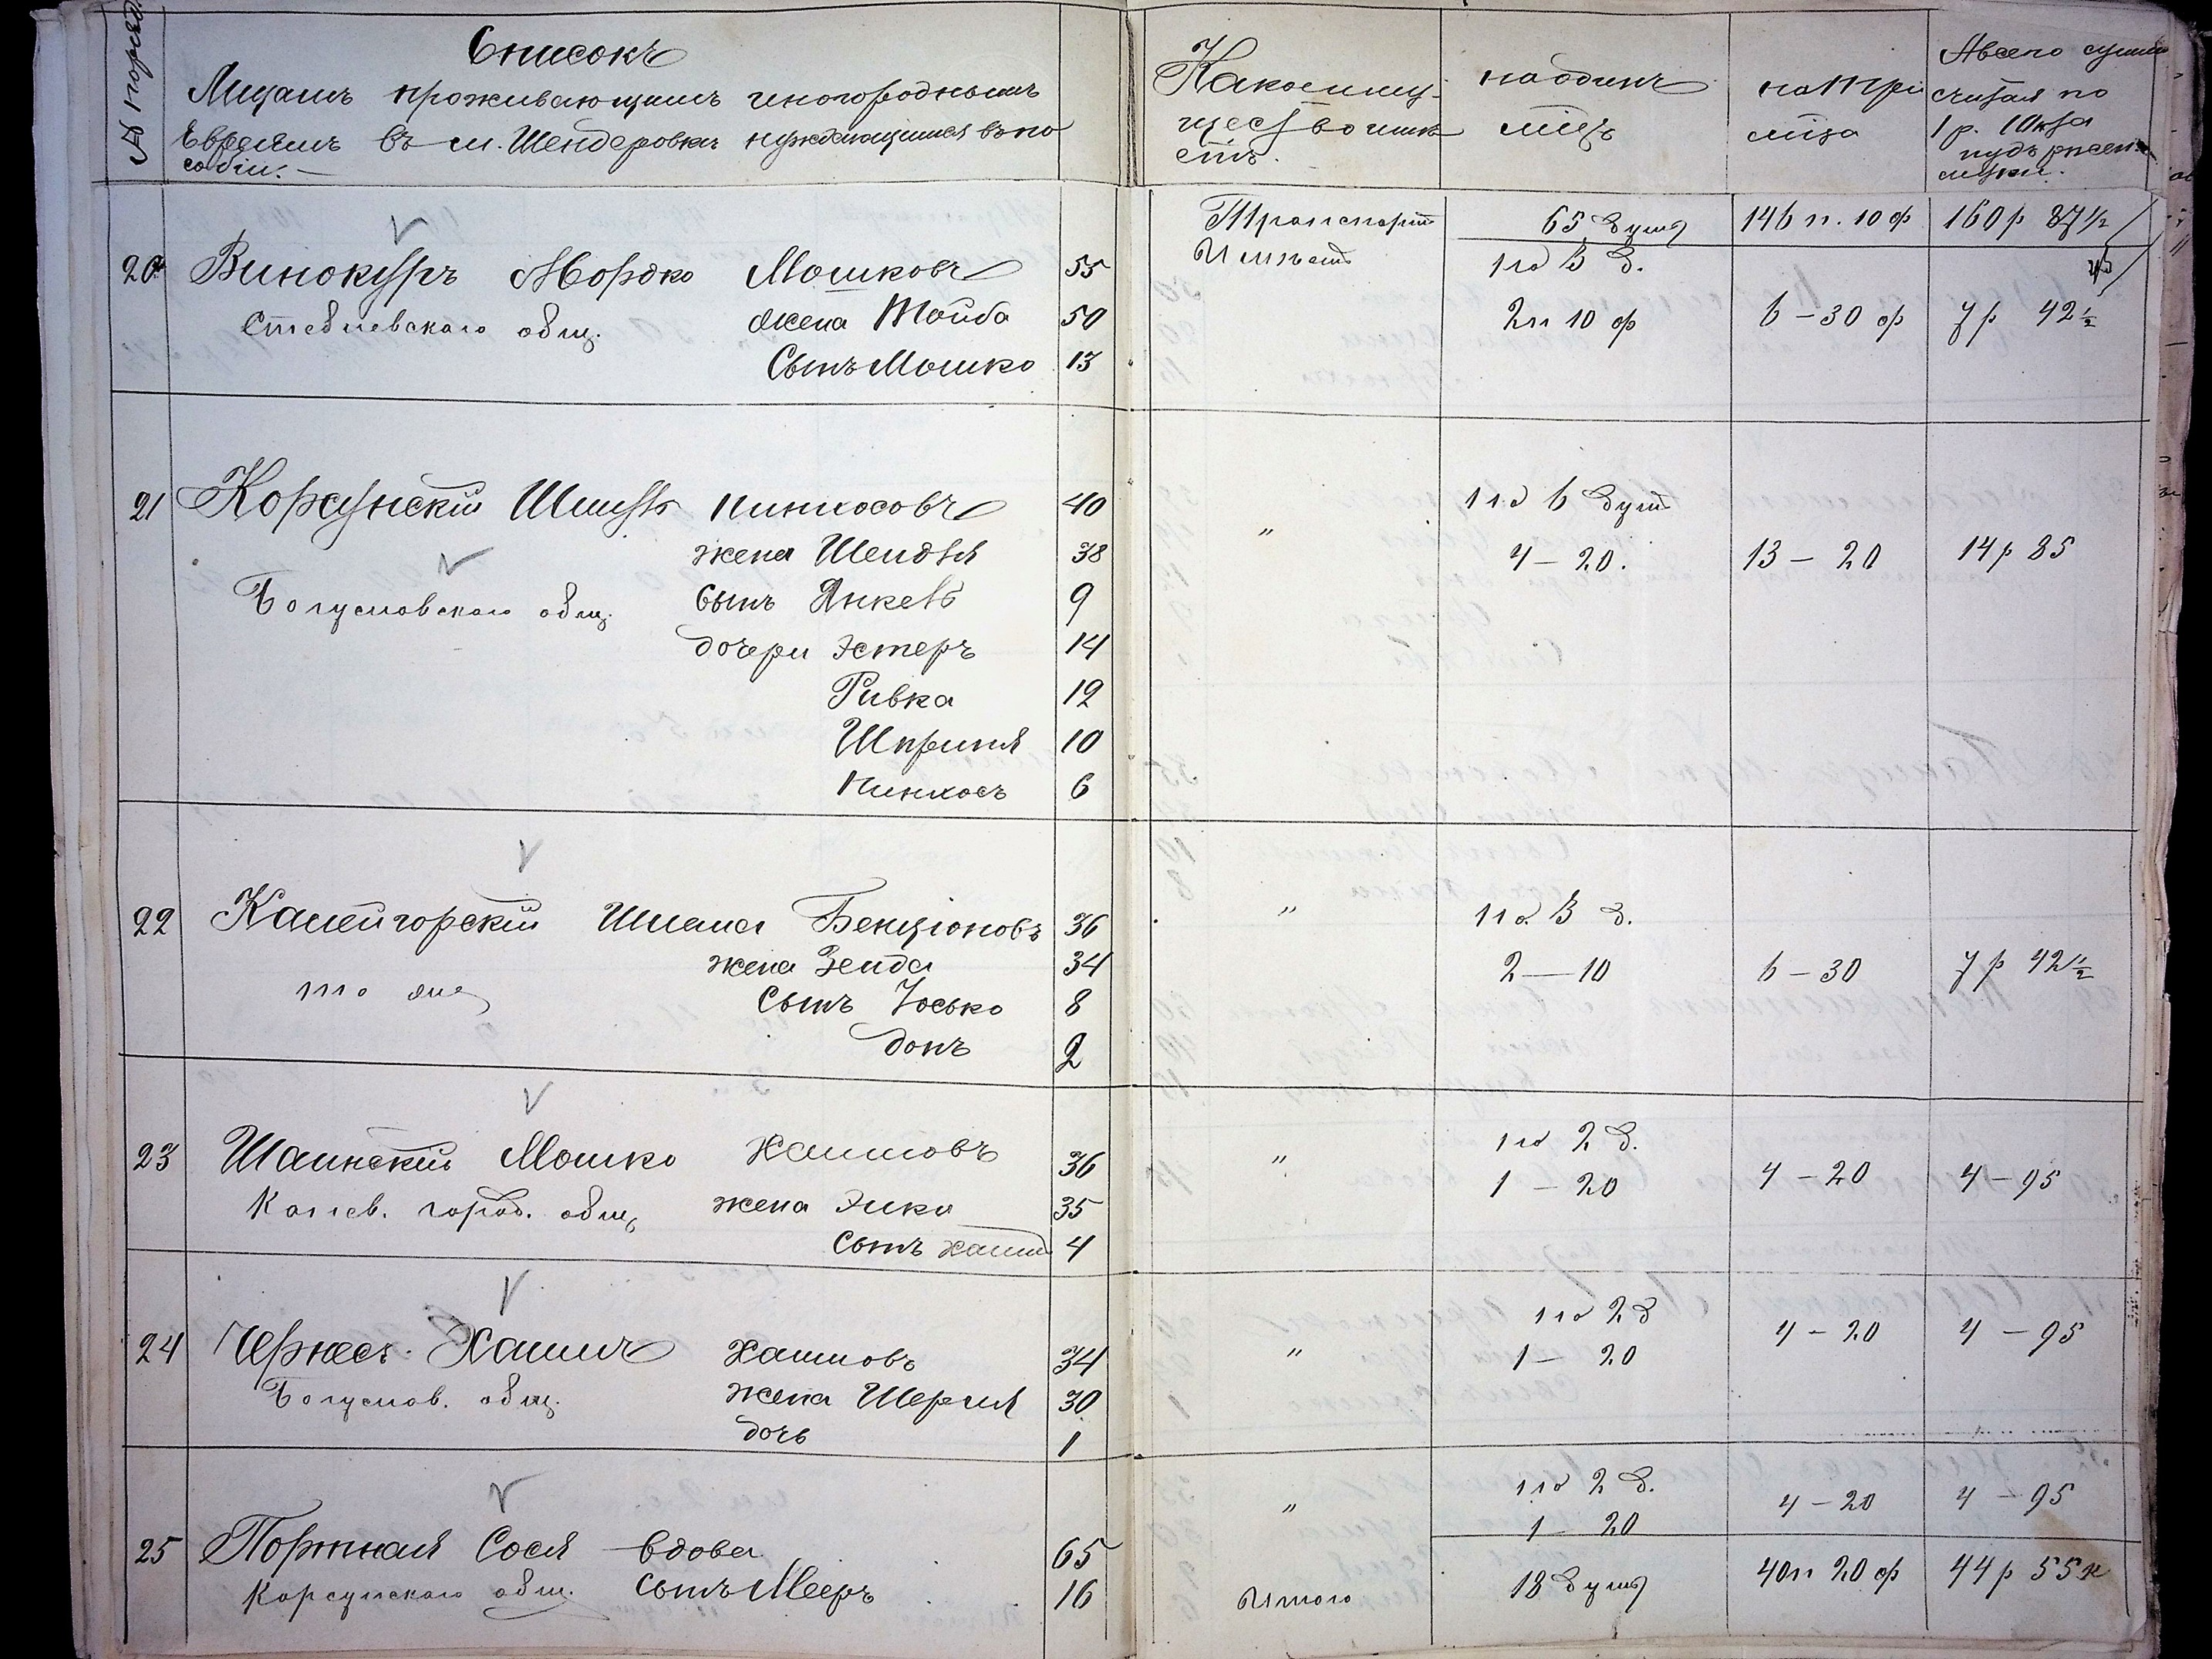 № поряд.
Списокъ
Лицамъ проживающимъ иногороднымъ
Евреямъ въ м. Шендеровкѣ нуждающимся въ по
собіи. —
Какое иму-
щество имѣ
етъ.
на одинъ
мѣцъ
на три
мѣца
А всего сумма
считая по
1 р. 10 к за
пудъ ржен.
муки.
Транспортъ 65 душъ 146 п. 10 ф 160 р 87 1/2
20 Винокуръ Мордко Мошковъ 55 Неимѣетъ на 3 д.
Стеблевскаго общ. жена Тойба 50 2 п 10 ф 6 – 30 ф 7 р 42 1/2
Сынъ Мошко 13
21 Корсунскій Шмуль Пинхосовъ 40 " на 6 душъ
жена Шендля 38 4 – 20. 13 – 20 14 р 85
Богуславскаго общ. сынъ Янкель 9
дочери Эстеръ 14
Ривка 12
Шприня 10
Пинхосъ 6
22 Каменгорскій Шлема Бенціоновъ 36 " на 3 д.
жена Зелда 34 2 – 10 6 – 30 7 р 42 1/2
того же Сынъ Іосько 8
дочь 2
23 Шаинскій Мошко Хаимовъ 36 " на 2 д.
Каніев. город. общ. жена Энка 35 1 – 20 4 – 20 4 – 95
сынъ Хаимъ 4
24 Черкес. Хаимъ Хаимовъ 34 " на 2 д
Богуслав. общ. жена Шерля 30 1 – 20 4 – 20 4 – 95
дочь 1
25 Портная Сося вдова 65 " на 2 д. 4 – 20 4 – 95
1 – 20
Корсунскаго общ. сынъ Мееръ 16
Итого 18 душъ 40 п 20 ф 44 р 55 к